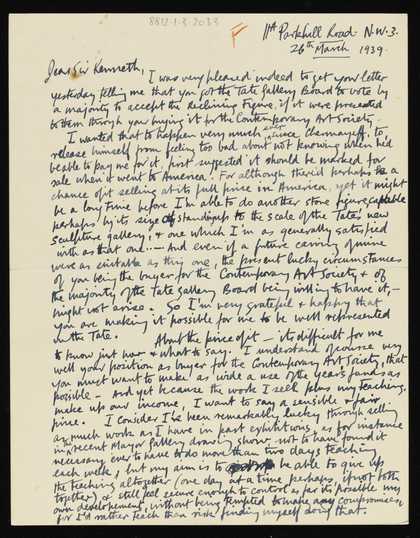 8812.1.3.2033
F
11A Parkhill Road. N.W.3.
26th March 1939.
Dear Sir Kenneth,
I was very pleased indeed to get your letter
yesterday telling me that you got the Tate Gallery Board to vote by
a majority to accept the Reclining Figure, if it were presented
to them through you buying it for the Contemporary Art Society.
I wanted that to happen very much ever since Chermayeff, to
release himself from feeling too bad about not knowing when he'd
be able to pay me for it, first suggested it should be marked for
sale when it went to America. For although there'd perhaps be a
chance of it selling at its full price in America, yet it might
be a long time before I'm able to do another stone figure, capable
perhaps by its size of standing up to the scale of the Tate's new
sculpture gallery, & one which I'm as generally satisfied
with as that one. — And even if a future carving of mine
were as suitable as this one, the present lucky circumstances
of you being the buyer for the Contemporary Art Society & of
the majority of the Tate Gallery Board being willing to have it, —
might not arise. So I'm very grateful & happy that
you are making it possible for me to be well represented
in the Tate. About the price of it — its difficult for me
to know just how & what to say. I understand of course very
well your position as buyer for the Contemporary Art Society, that
you must want to make as wide a use of the year's funds as
possible — And yet because the work I sell, plus my teaching,
make up our income, I want to say a sensible & fair
price. I consider I've been remarkably lucky through selling
as much work as I have in past exhibitions, as for instance
in my recent Mayor Gallery drawing show, not to have found it
necessary ever to have to do more than two days teaching
each week, but my aim is to be able to give up
the teaching altogether (one day at a time perhaps, if not both
together) & still feel secure enough to control as far as possible my
own development, without being tempted to make any compromises,
for I'd rather teach than risk finding myself doing that.